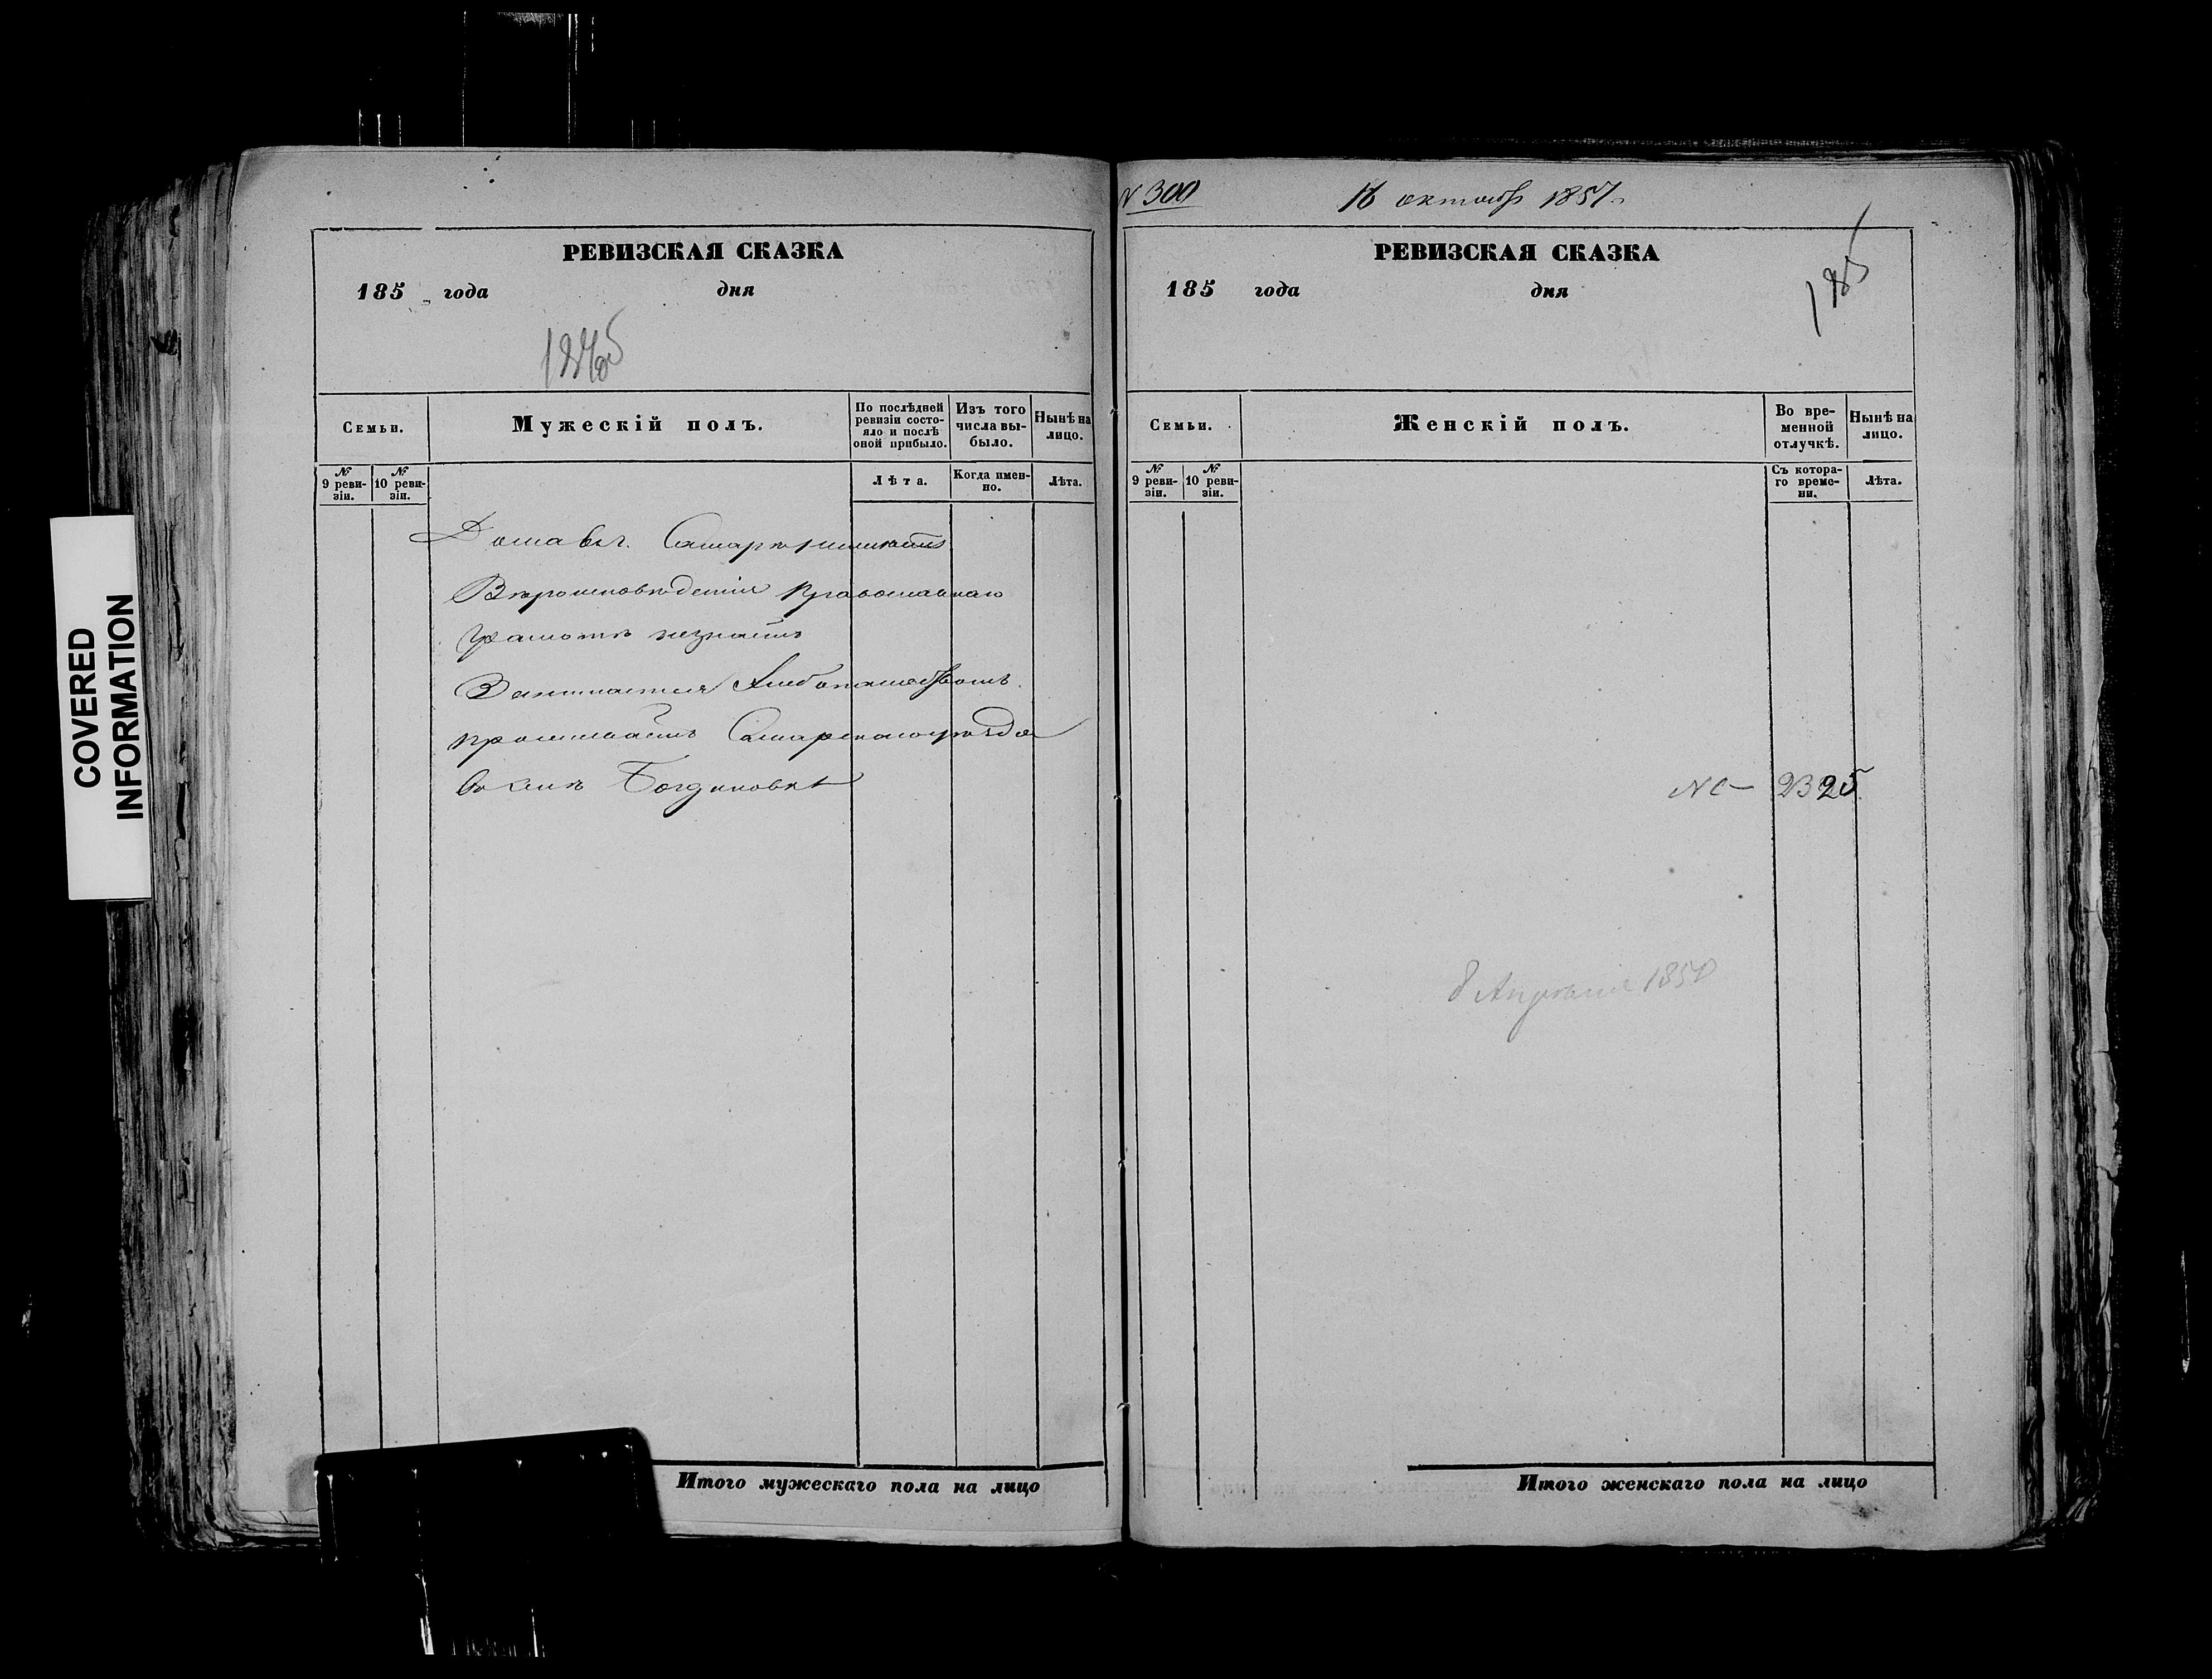 COVERED
INFORMATION
РЕВИЗСКАЯ СКАЗКА
185 года дня
Семьи.
Мужескій полъ.
По послѣдней ревизіи состояло и послѣ оной прибыло.
Изъ того числа выбыло.
Нынѣ на лицо.
№ 9 ревизіи.
№ 10 ревизіи.
Лѣта.
Когда именно.
Лѣта.
Дома
Вѣроисповѣденія православнаго
грамотѣ незнаетъ
Занимается хлебопашеством
проживаетъ Самарскаго уѣзда
В селѣ Богдановке
Итого мужескаго пола на лицо
N 300
16 октября 1857
РЕВИЗСКАЯ СКАЗКА
185 года дня
185
Семьи.
Женскій полъ.
Во временной отлучкѣ.
Нынѣ на лицо.
№ 9 ревизіи.
№ 10 ревизіи.
Съ котораго времени.
Лѣта.
2325
8 Апреля
Итого женскаго пола на лицо